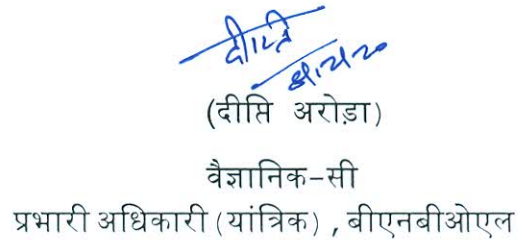 दीप्ति
(दीप्ति अरोड़ा)
वैज्ञानिक-सी
प्रभारी अधिकारी (यांत्रिक) , बीएनबीओएल